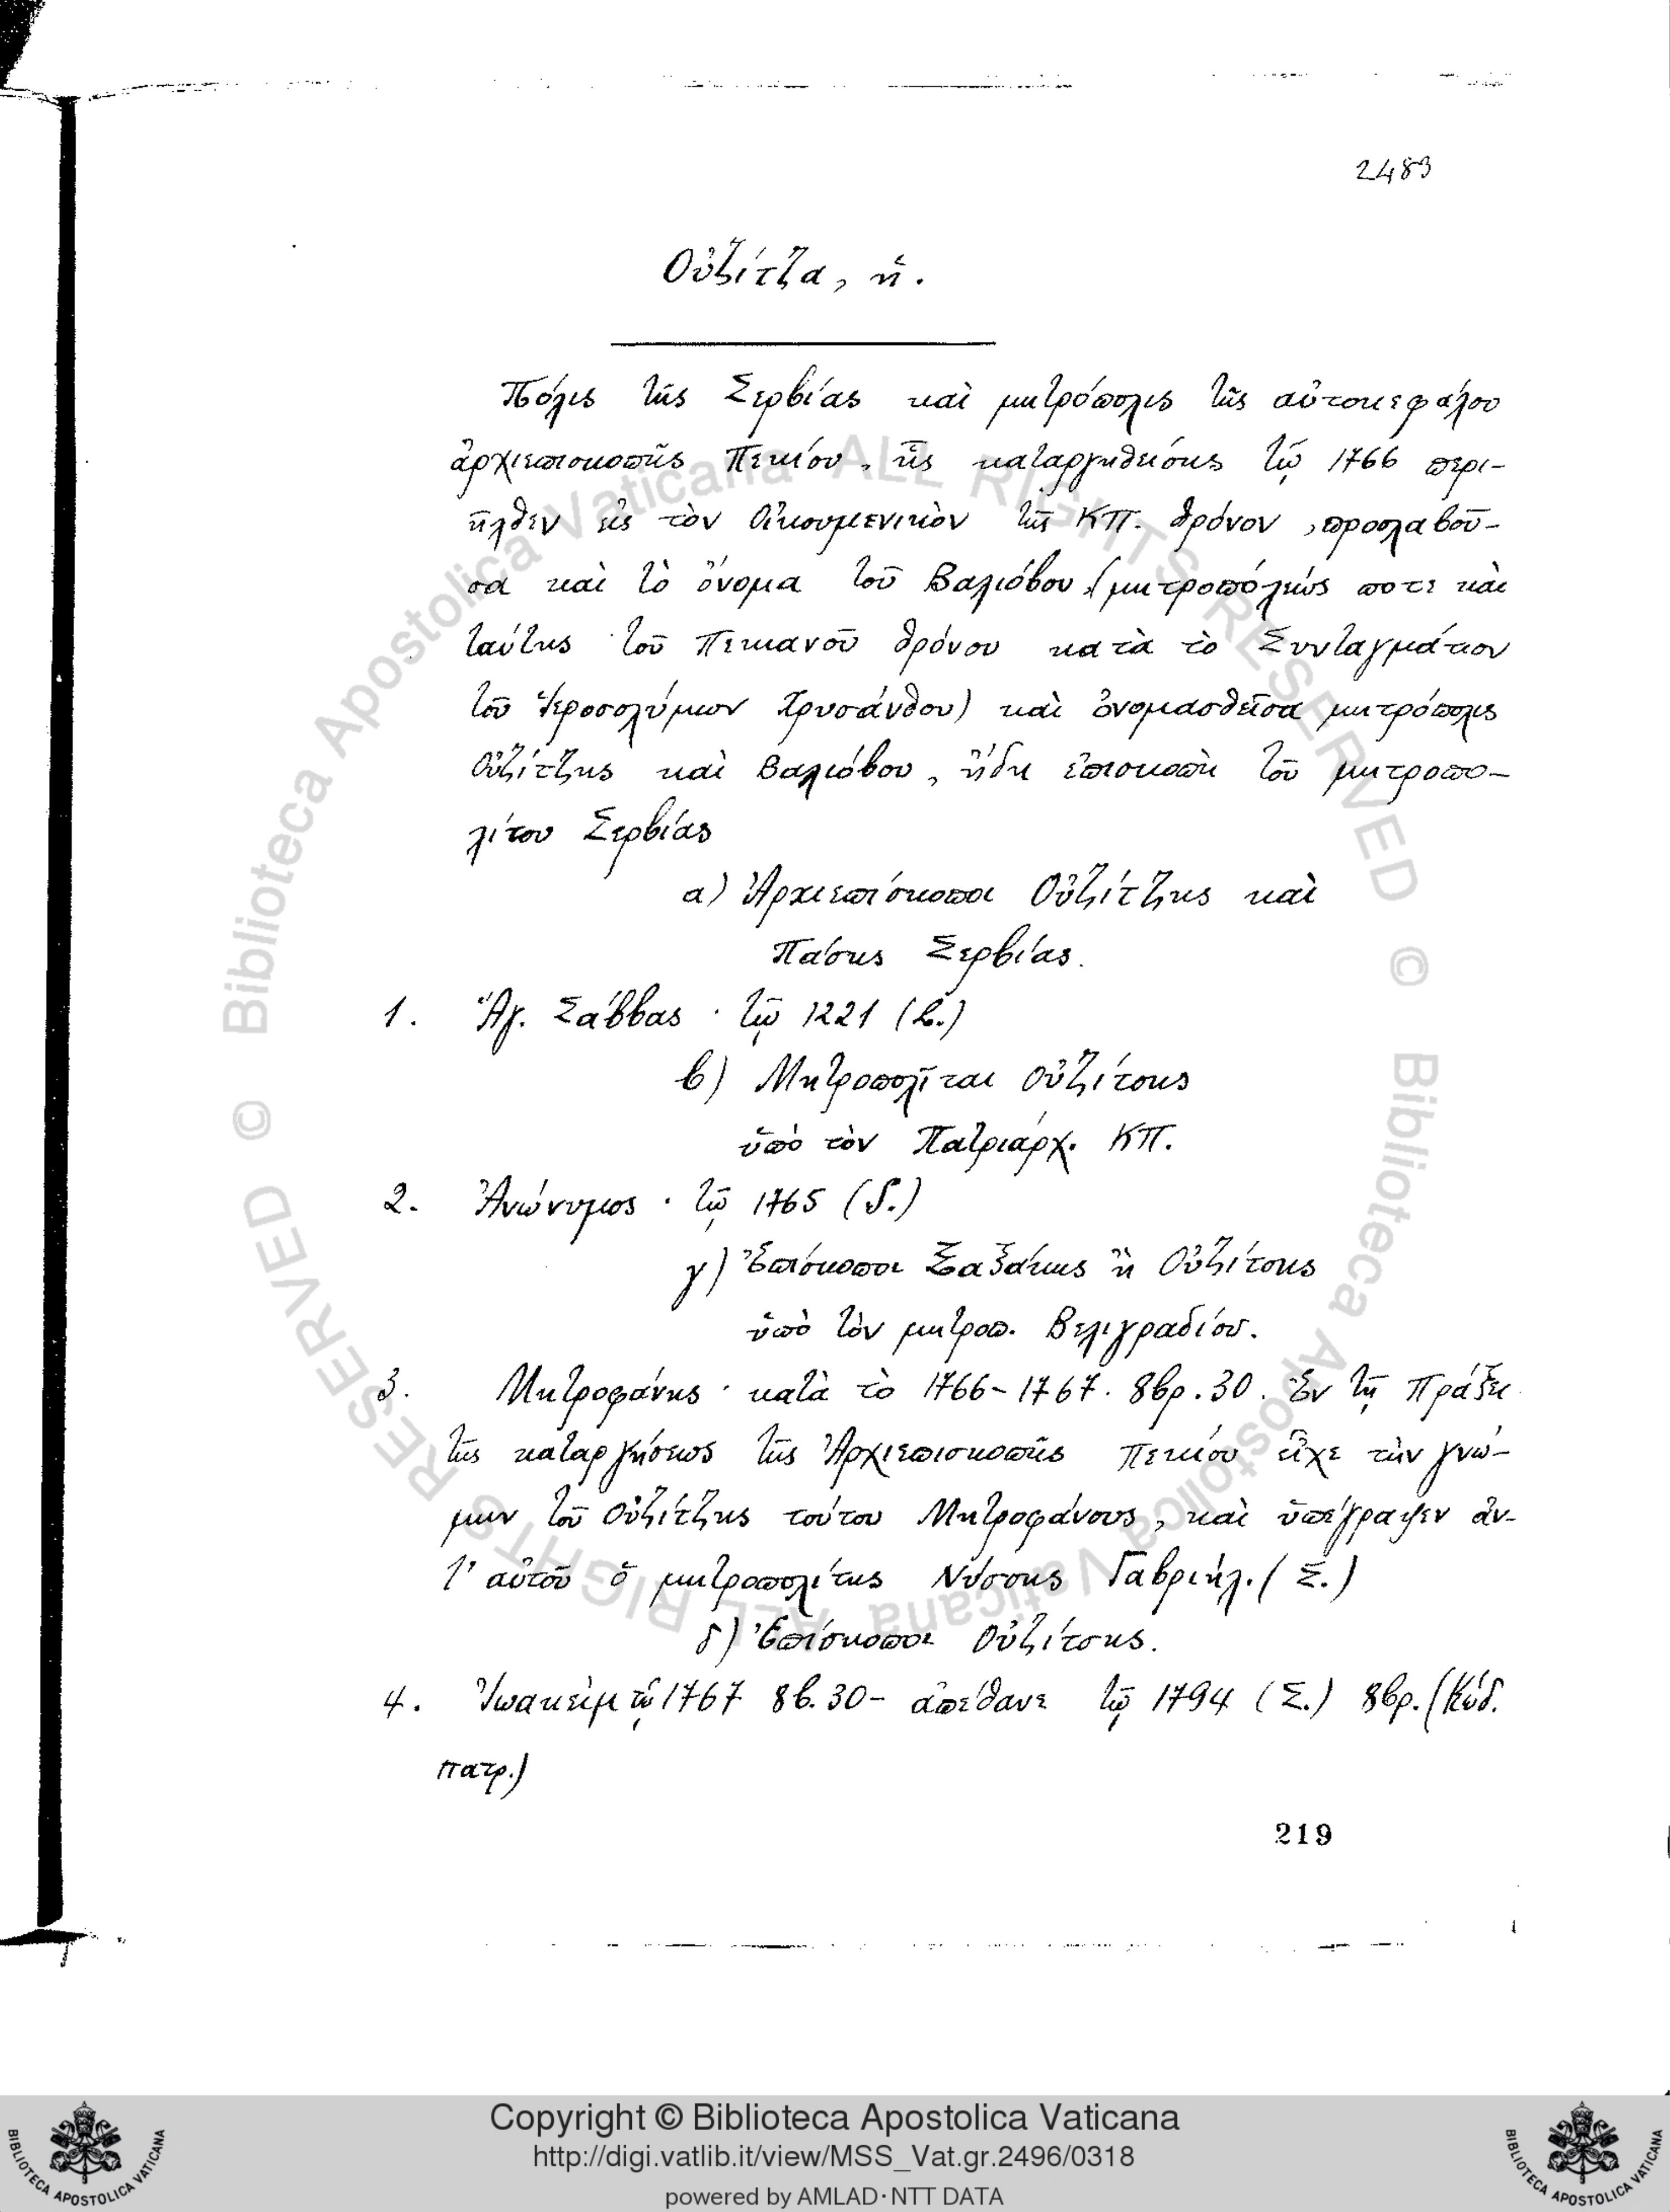 2489
Οὐζίτζα, ἡ.
Πόλις τῆς Σερβίας καὶ μητρόπολις τῆς αὐτοκεφάλου
ἀρχιεπισκοπῆς Πεκίου, ἧς καταργηθείσης τῷ 1766 περι-
ῆλθεν εἰς τὸν Οἰκουμενικὸν τῆς ΚΠ. θρόνον, προσλαβοῦ-
σα καὶ τὸ ὄνομα τοῦ Βαλιόβου (μητροπόλεώς ποτε καὶ
ταύτης τοῦ Πεκιανοῦ θρόνου κατὰ τὸ Συνταγμάτιον
τοῦ Ἱεροσολύμων Χρυσάνθου) καὶ ὀνομασθεῖσα μητρόπολις
Οὐζίτζης καὶ Βαλιόβου, ἤδη ἐπισκοπὴ τοῦ μητροπο-
λίτου Σερβίας
α) Ἀρχιεπίσκοποι Οὐζίτζης καὶ
Πάσης Σερβίας.
1. Ἅγ. Σάββας · τῷ 1221 (β.)
β) Μητροπολῖται Οὐζίτσης
ὑπὸ τὸν Πατριάρχ. ΚΠ.
2. Ἀνώνυμος · τῷ 1765 (δ.)
γ) Ἐπίσκοποι Σαξάκης ἢ Οὐζίτσης
ὑπὸ τὸν μητροπ. Βελιγραδίου.
3. Μητροφάνης · κατὰ τὸ 1766-1767. 8βρ. 30. Ἐν τῇ Πράξει
τῆς καταργήσεως τῆς Ἀρχιεπισκοπῆς Πεκίου εἶχε τὴν γνώ-
μην τοῦ Οὐζίτζης τούτου Μητροφάνους, καὶ ὑπέγραψεν ἀν-
τ' αὐτοῦ ὁ μητροπολίτης Νύσσης Γαβριήλ. (Σ.)
δ) Ἐπίσκοποι Οὐζίτσης.
4. Ἰωακεὶμ τῷ 1767 8β. 30 - ἀπέθανε τῷ 1794 (Σ.) 8βρ. (Κώδ.
πατρ.)
219
© Biblioteca Apostolica Vaticana ALL RIGHTS RESERVED
© Biblioteca Apostolica Vaticana ALL RIGHTS RESERVED
Copyright © Biblioteca Apostolica Vaticana
http://digi.vatlib.it/view/MSS_Vat.gr.2496/0318
powered by AMLAD·NTT DATA
BIBLIOTECA APOSTOLICA VATICANA
BIBLIOTECA APOSTOLICA VATICANA